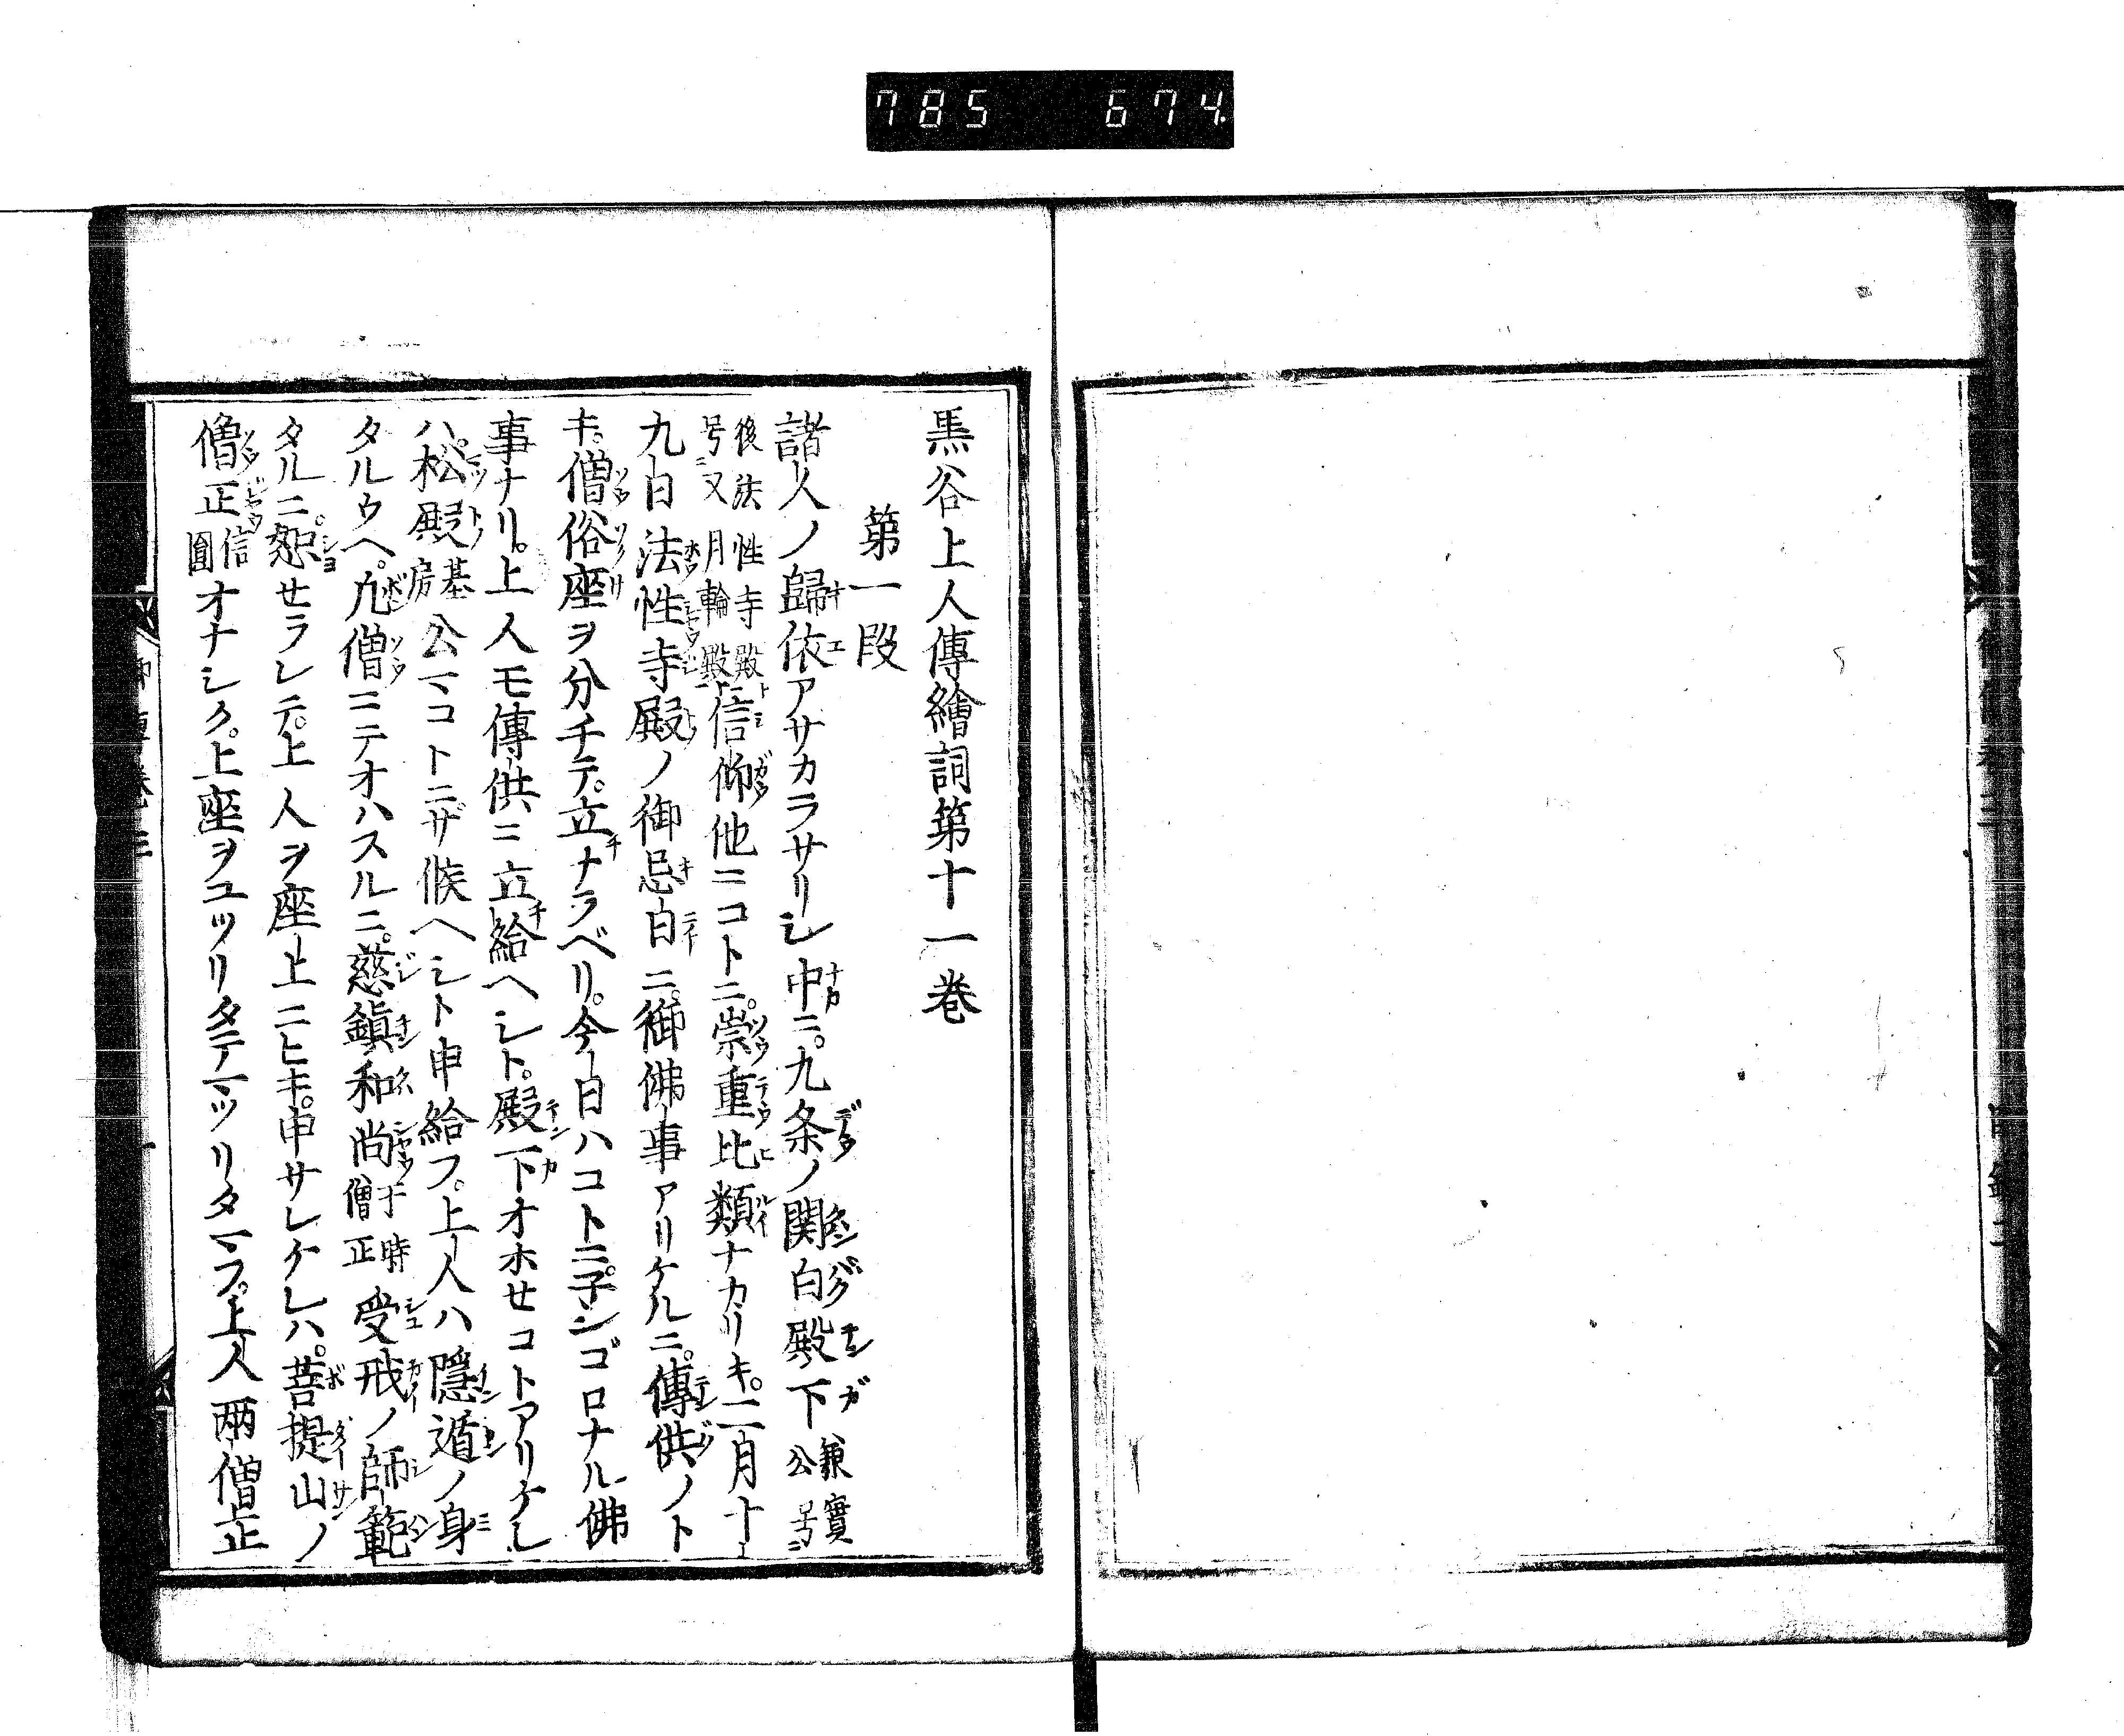 785 674
黒谷上人傳繪詞第十一巻
第一段
諸人ノ歸依アサカラサリシ中ニ。九条ノ関白殿下兼實公号ニ
後法性寺殿号ニ又月輪殿ト信仰他ニコトニ。崇重比類ナカリキ。二月十
九日法性寺殿ノ御忌日ニ。御佛事アリケルニ。傳供ノト
キ。僧俗座ヲ分チテ。立ナラベリ。今日ハコトニ。子ンゴロナル佛
事ナリ。上人モ傳供ニ立給ヘシト。殿下オホせコトアリケレ
ハ。松殿基房公マコトニザ候ヘシト申給フ。上人ハ隠遁ノ身
タルウヘ。凢僧ニテオハスルニ。慈鎮和尚于時僧正受戒ノ師範
タルニ。恕せラレテ。上人ヲ座上ニヒキ。申サレケレハ。菩提山ノ
僧正信圓オナシク。上座ヲユツリタテマツリタマフ。上人両僧正